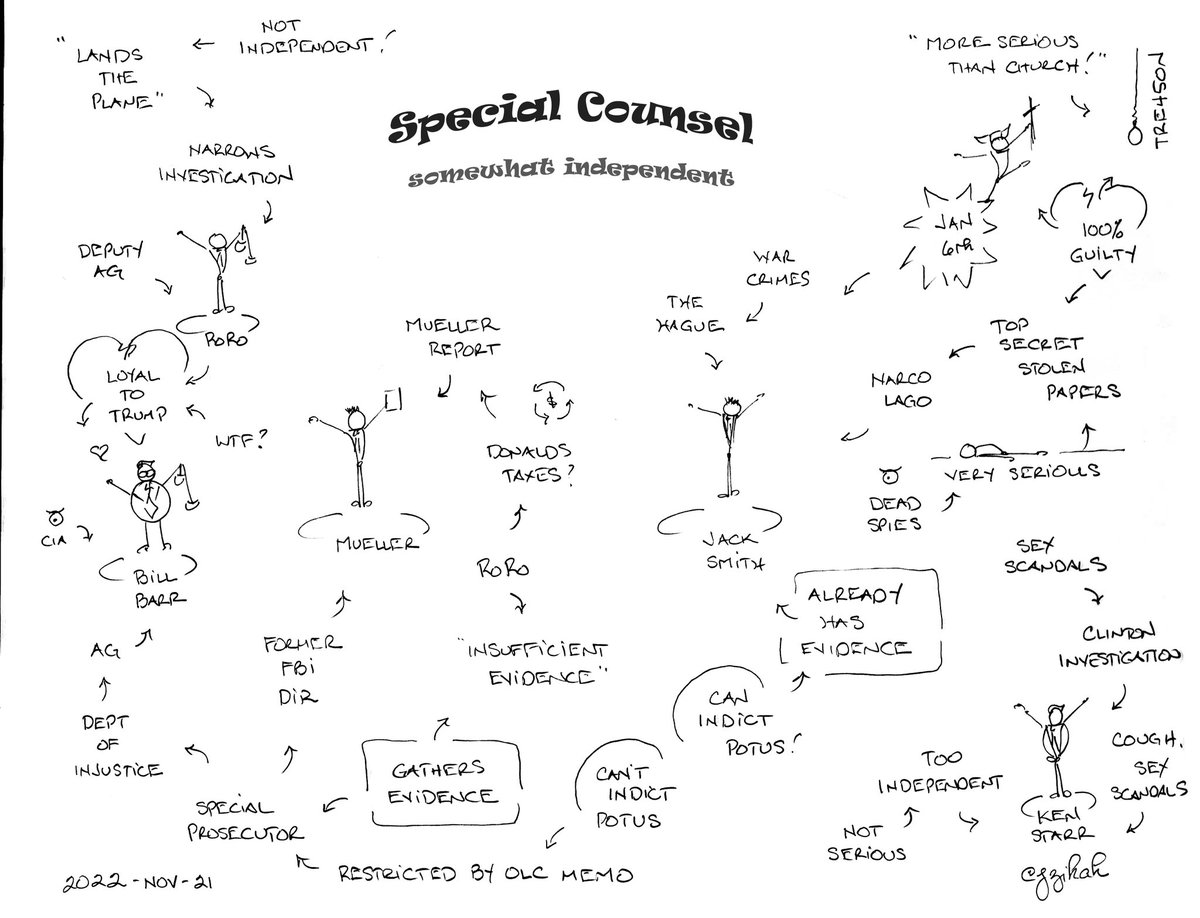 NOT
INDEPENDENT!
"LANDS
THE
PLANE"
NARROWS
INVESTIGATION
DEPUTY
AG
RORO
LOYAL
TO
TRUMP
WTF?
CIA
BILL
BARR
AG
DEPT
OF
INJUSTICE
2022-NOV-21
Special Counsel
somewhat independent
MUELLER
REPORT
MUELLER
FORMER
FBI
DIR
SPECIAL
PROSECUTOR
$
DONALDS
TAXES?
RORO
"INSUFFICIENT
EVIDENCE"
GATHERS
EVIDENCE
CAN'T
INDICT
POTUS
RESTRICTED BY OLC MEMO
CAN
INDICT
POTUS!
ALREADY
HAS
EVIDENCE
WAR
CRIMES
THE
HAGUE
JACK
SMITH
"MORE SERIOUS
THAN CHURCH!"
TRE45ON
JAN
6TH
100%
GUILTY
TOP
SECRET
STOLEN
PAPERS
NARCO
LAGO
VERY SERIOUS
DEAD
SPIES
SEX
SCANDALS
CLINTON
INVESTIGATION
COUGH.
SEX
SCANDALS
TOO
INDEPENDENT
NOT
SERIOUS
KEN
STARR